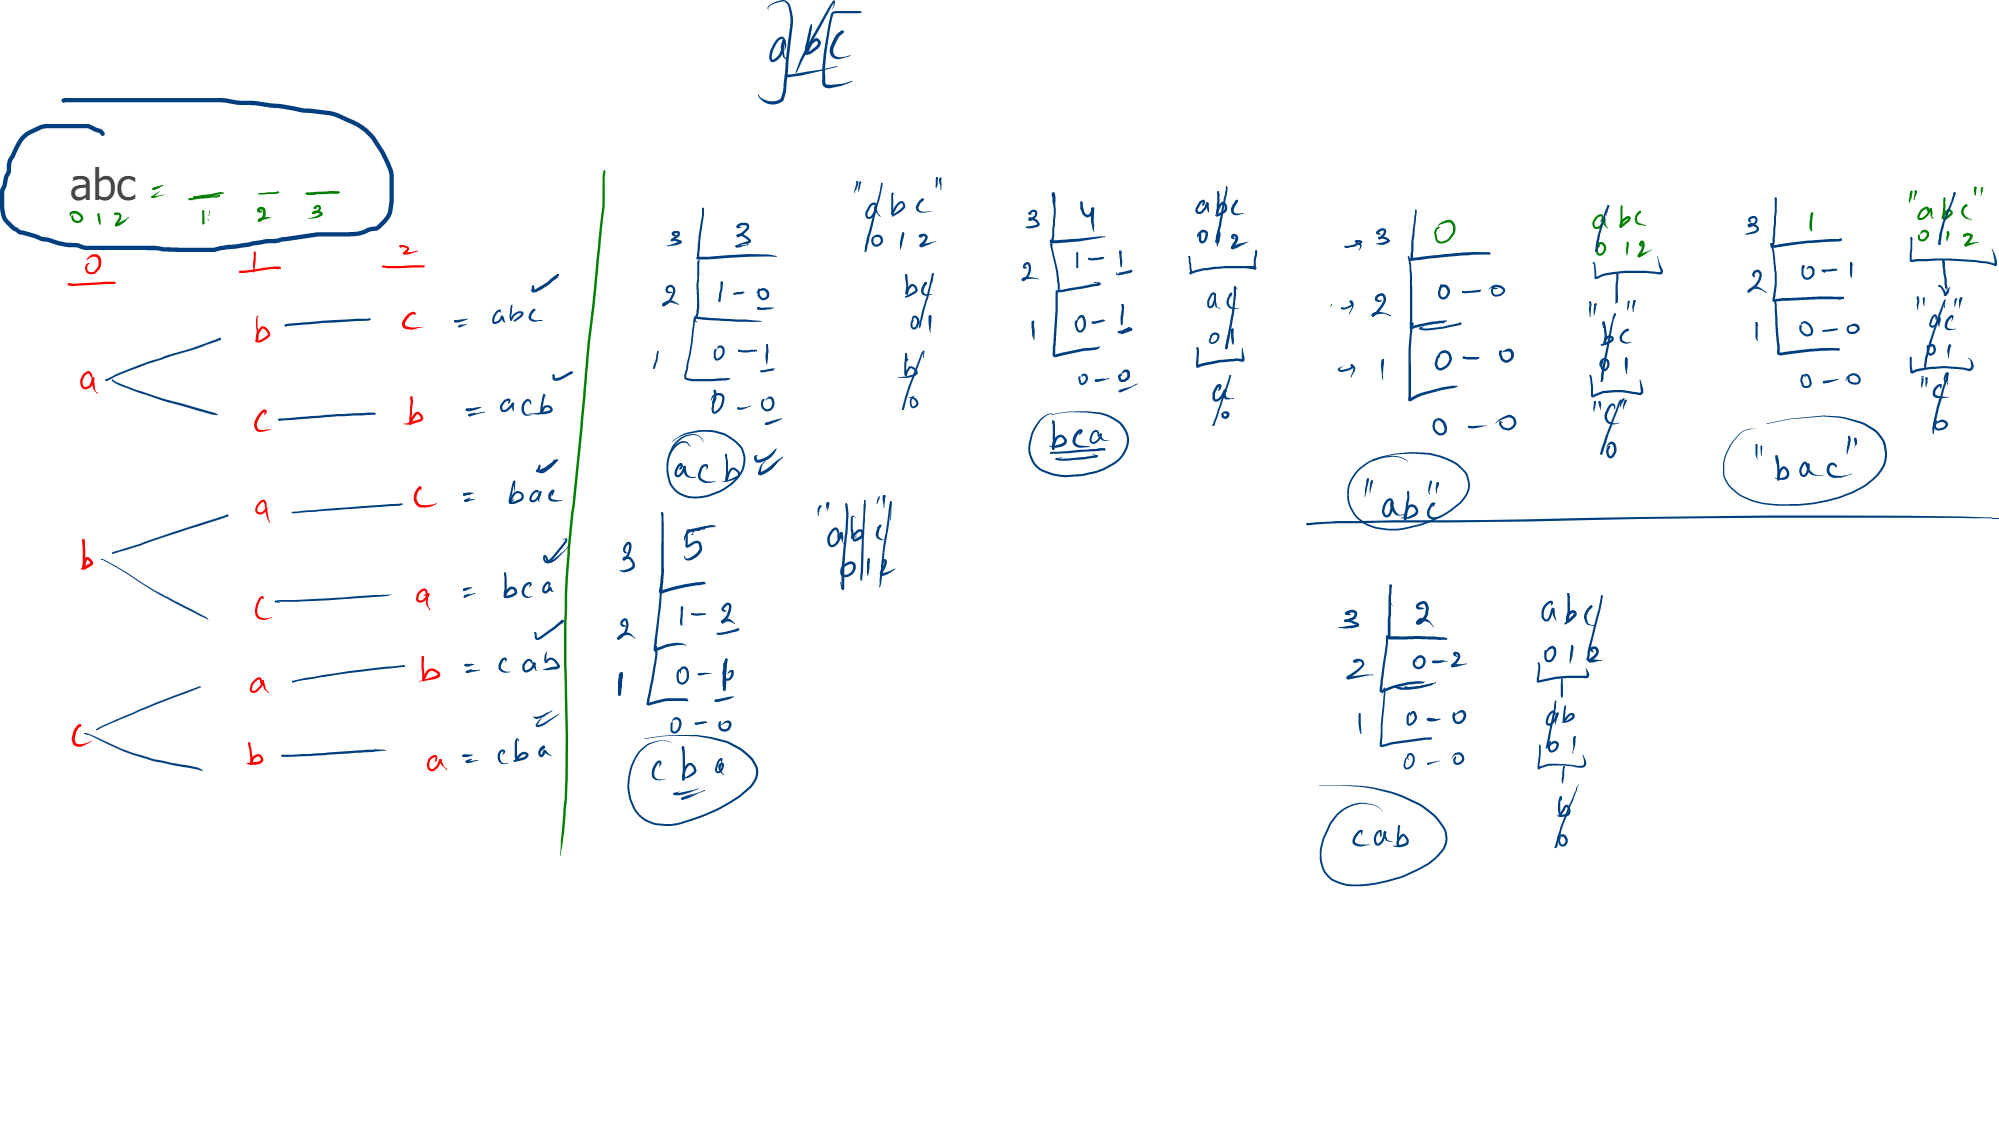 abc
abc = _ _ _
0 1 2 1 2 3
0 1 2
a
b c = abc ✓
c b = acb ✓
b
a c = bac ✓
c a = bca ✓
c
a b = cab ✓
b a = cba ✓
3 3
2 1 - 0
1 0 - 1
0 - 0
acb ✓
"abc"
0 1 2
bc
0 1
b
0
3 4
2 1 - 1
1 0 - 1
0 - 0
bca
abc
0 1 2
ac
0 1
a
0
→ 3 0
→ 2 0 - 0
→ 1 0 - 0
0 - 0
"abc"
abc
0 1 2
"bc"
0 1
"c"
0
3 1
2 0 - 1
1 0 - 0
0 - 0
"bac"
"abc"
0 1 2
"ac"
0 1
"c
0
3 5
2 1 - 2
1 0 - 1
0 - 0
cba
"abc"
0 1 2
3 2
2 0 - 2
1 0 - 0
0 - 0
cab
abc
0 1 2
ab
0 1
b
0